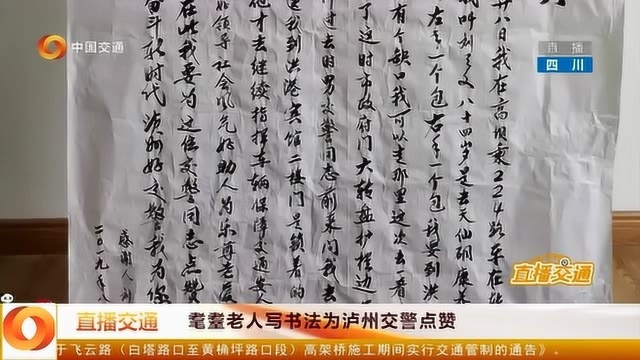 中国交通
直播
四川
廿八日我在高坝乘224路车在
八十四岁是去天仙硐康养
左手一个包右手一个包我要到洪
有个缺口我可以走那里这次去一看
了这时市政府门大转盘护栏边
过去时男交警同志前来问我去
我到洪港宾馆二楼门是锁着的
他才去继续指挥车辆保障交通安
好领导社会风气好助人为乐尊老爱
在此我要为这位交警同志点赞
新时代泸州好交警我为你
感谢人刘
二0一九年八
直播交通
直播交通
耄耋老人写书法为泸州交警点赞
于飞云路（白塔路口至黄桷坪路口段）高架桥施工期间实行交通管制的通告》。